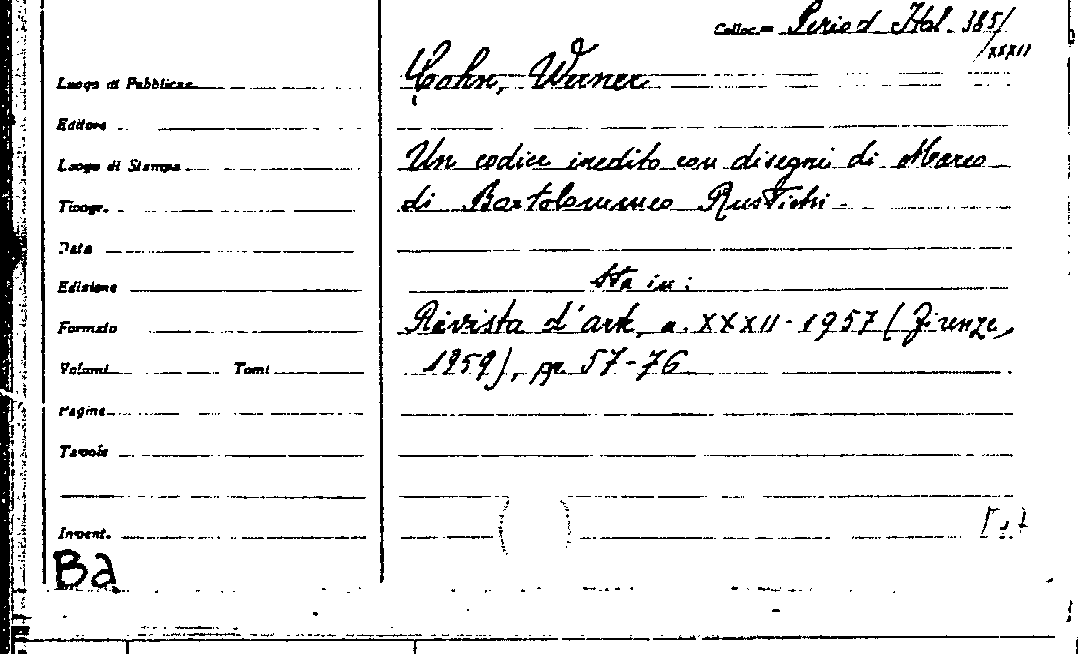 Colloc= Period Ital. 385/
/XXXII
Luogo di Pubblicaz.
Cohn, Werner
Editore
Luogo di Stampa
Un codice inedito con disegni di Marco
Tipogr.
di Bartolommeo Rustichi.
Data
Edizione
Sta in:
Formato
Rivista d'arte, a. XXXII-1957 (Firenze,
Volumi Tomi
1959), pp. 57-76
Pagine
Tavole
Invent.
Ba